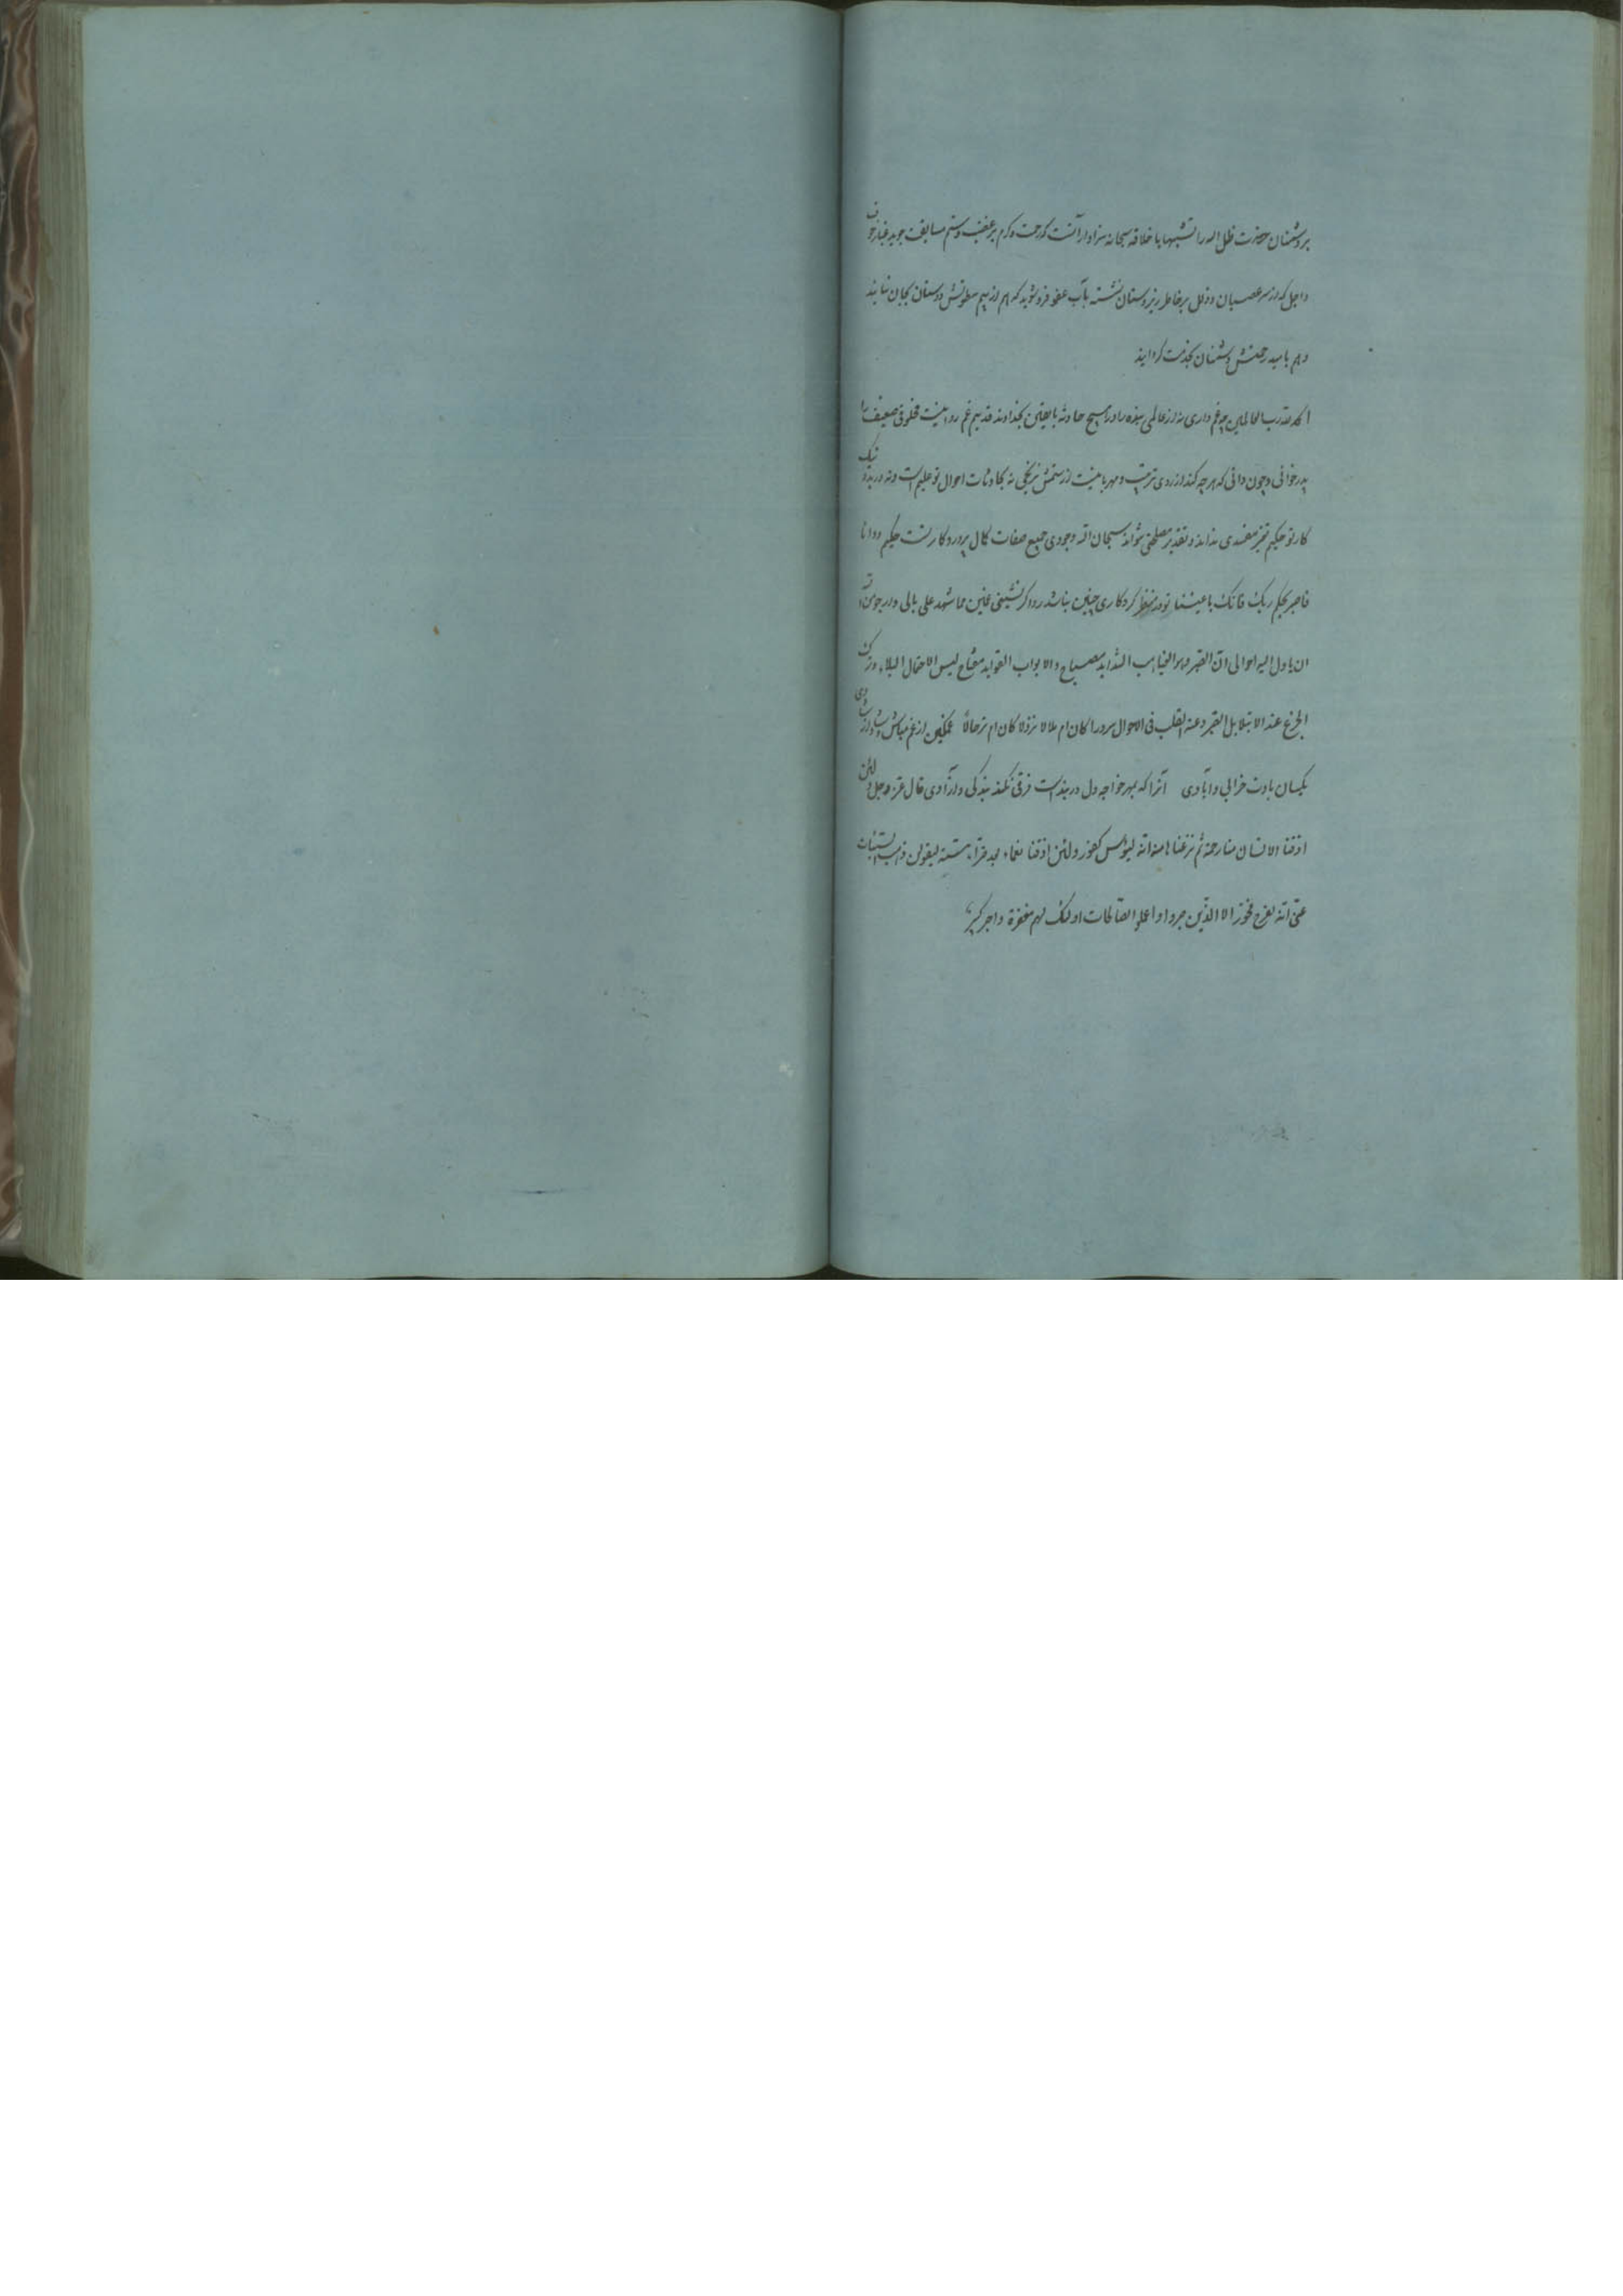 بر دشمنان حضرت ظل اله را تشبیها باخلاقه سبحانه سزاوار آنست که رحمت و کرم بر غضب و ستم مسابقت جوید غبار خوف
و اجل که از سر عصیان و زلل بر خاطر زیردستان نشسته بآب عفو فرو شوید که هم از بیم سطوتش دوستان بجان نیایند
و هم بامید رحمتش دشمنان بخدمت گرایند
الحمد لله رب العالمین چه غم داری نه از عالمی بنده را در هیچ حادثه با یقین بخداوند قدیم غم روا نیست مخلوقی ضعیف را
پدر خوانی و چون دانی که هر چه کند از روی تربیت و مهربانیست از ستمش نرنجی نه بحادثات احوال تو علیم است و نه در نیک
کار تو حکیم تمیز مفسدی نداند و تقدیر مصلحتی نتواند سبحان الله وجودی جمیع صفات کمال پروردگار تست حکیم و دانا
فاصبر بحکم ربک فانک باعیننا تو در منظر کردگاری چنین نباشد روا گر نشینی غمین مما شهد علی بالی و ارجو من
ان یاول الیه احوالی ان الصبر لهو الغیاهب الشداید مصباح و لابواب الفواید مفتاح لیس الا احتمال البلاء و ترک
الجزع عند الابتلا بل الصبر دعة القلب فی الاحوال سرورا کان ام ملالا نزولا کان ام ترحالا غمگین از غم مباش و شاد از شادی
یکسان بادت خرابی و آبادی آنرا که بمهر خواجه دل در بند است فرقی نکند بندگی و آزادی قال عز و جل و لئن
اذقنا الانسان منا رحمة ثم نزعناها منه انه لیؤس کفور و لئن اذقناه نعماء بعد ضراء مسته لیقولن ذهب السیئات
عنی انه لفرح فخور الا الذین صبروا و اعملوا الصالحات اولئک لهم مغفرة و اجر کبیر